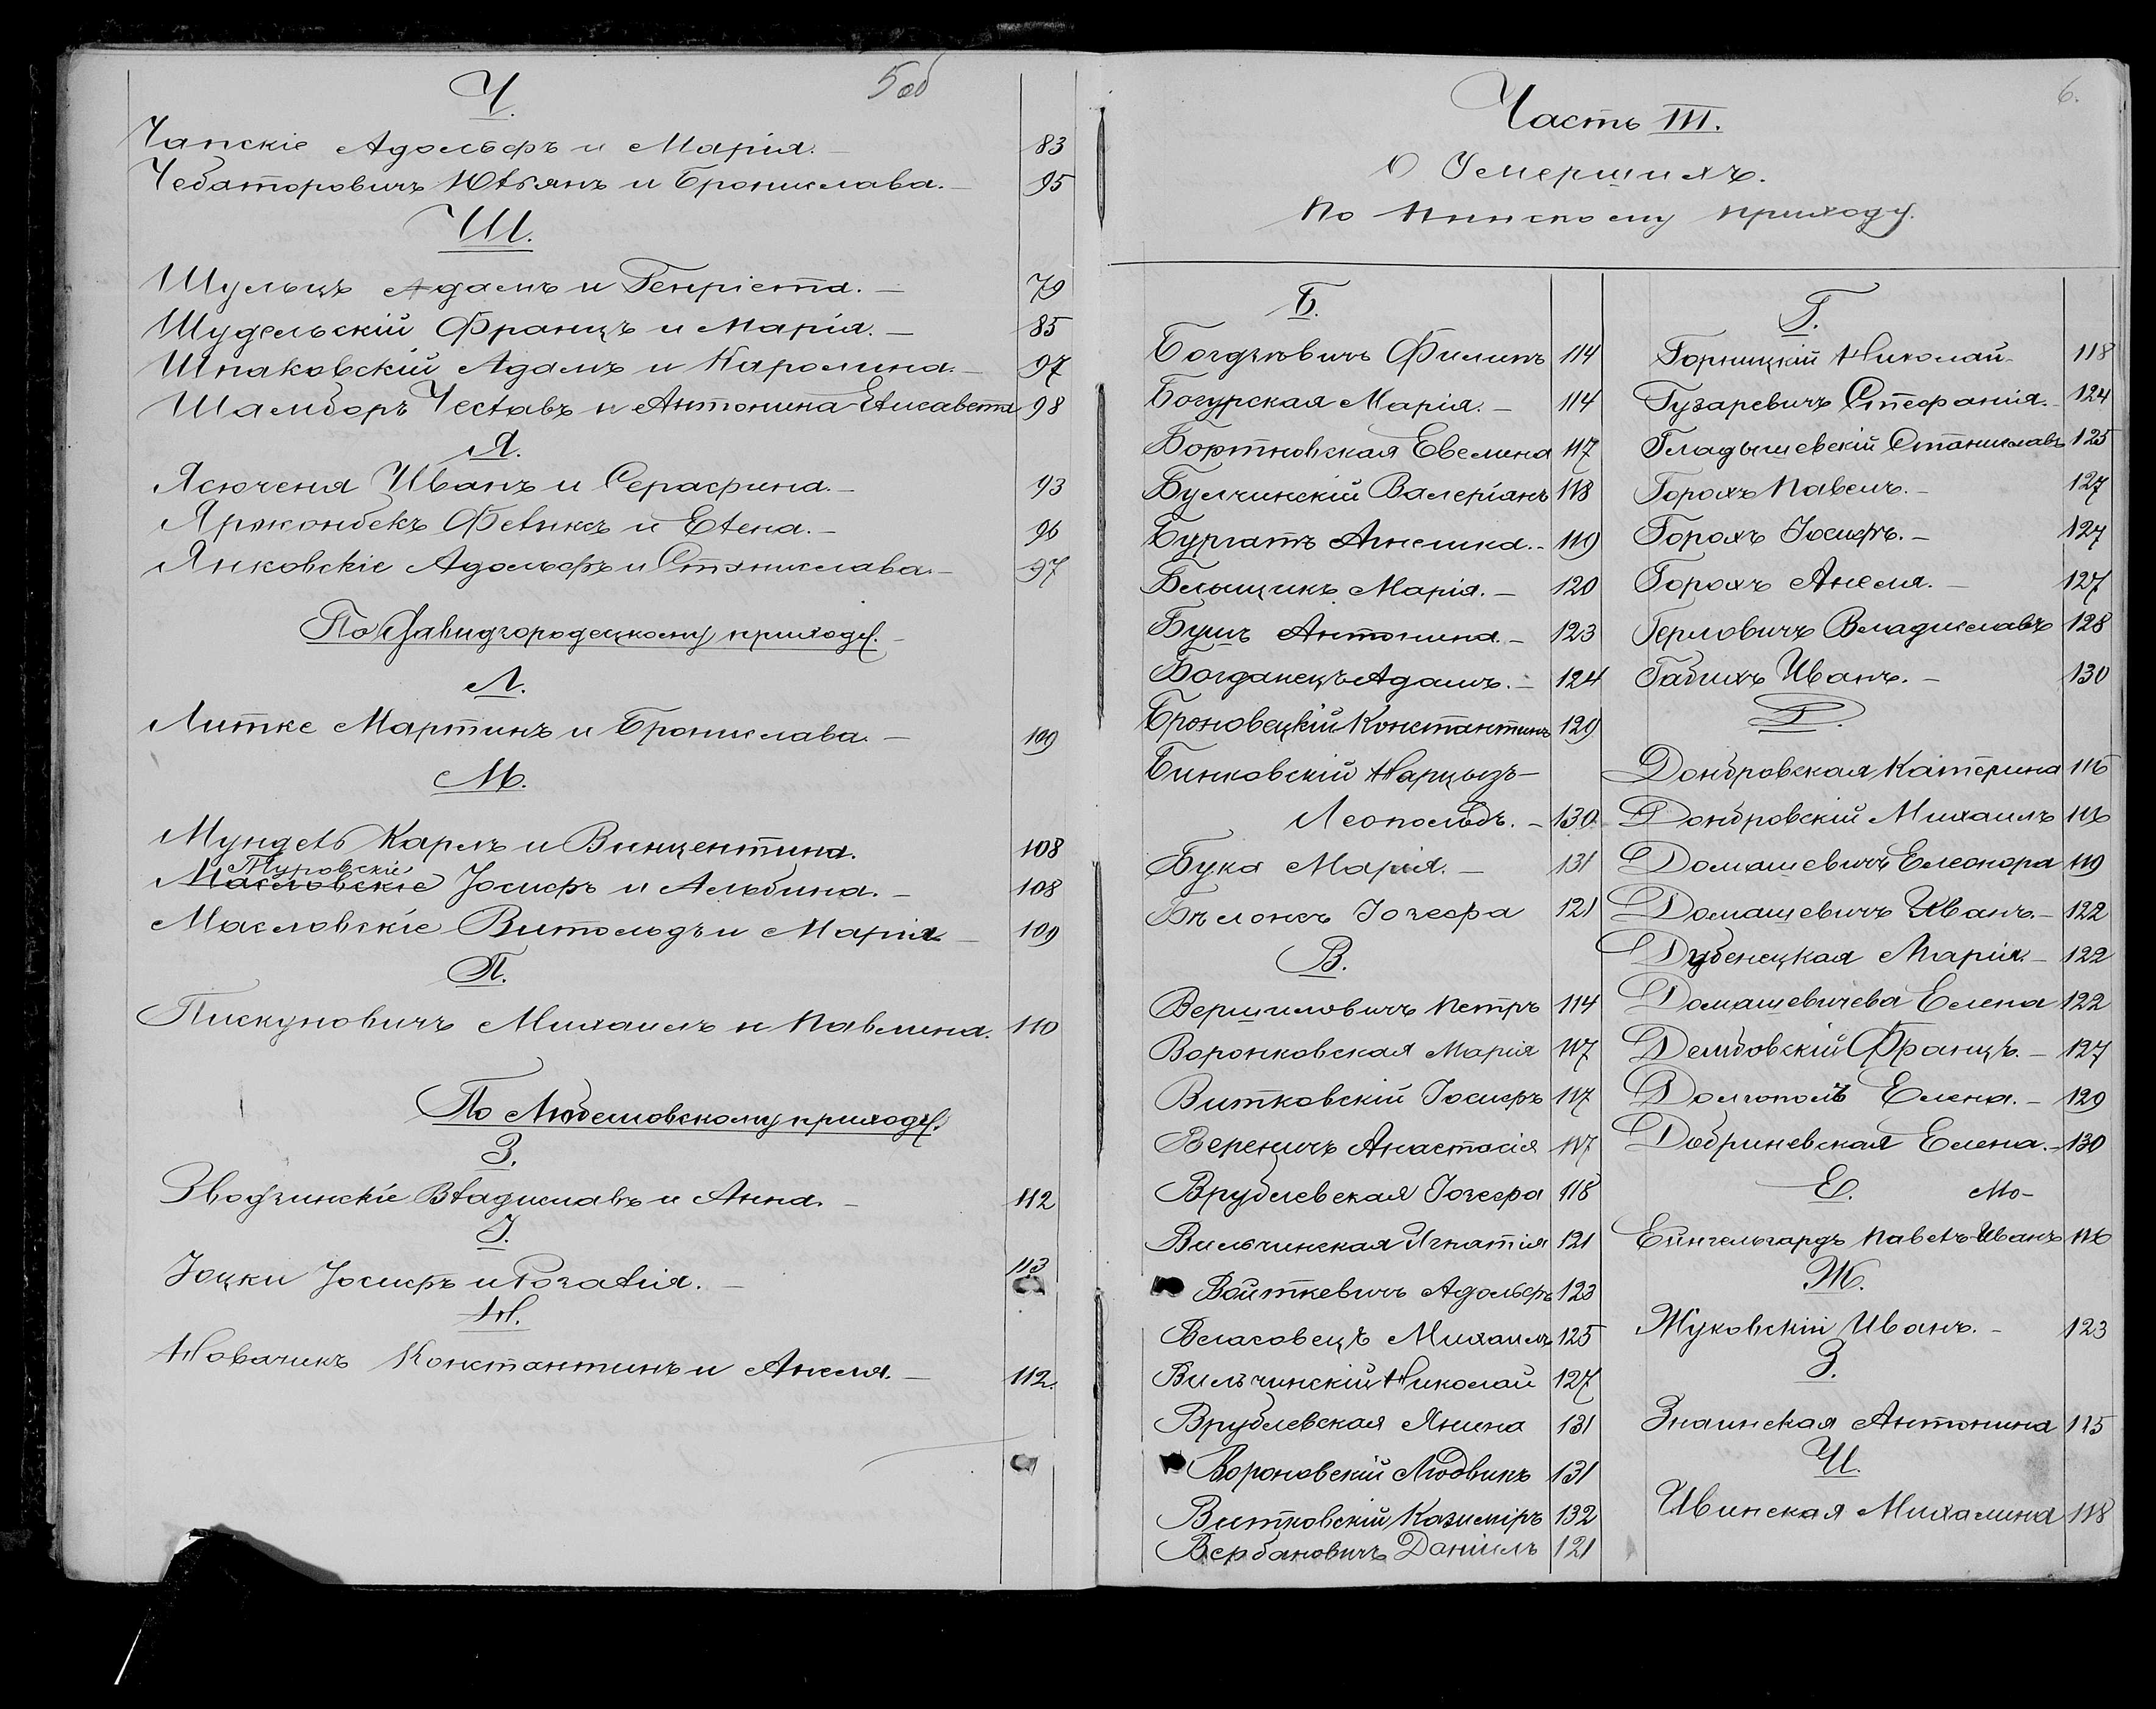 5 об
Ч.
Чапскіе Адольфъ и Марія. — 83
Чебаторовичъ Юльянъ и Брониславa. — 95
Ш.
Шульцъ Адамъ и Генріета. — 79
Шудельскій Францъ и Марія. — 85
Шпаковскій Адамъ и Каролина. — 97
Шамборъ Чеславъ и Антонина-Елисавета 98
Я.
Ясюченя Иванъ и Серафина. — 93
Яржонбекъ Феликсъ и Елена. — 96
Янковскіе Адольфъ и Станислава. — 97
По Давидгородецкому приходу. —
Л.
Литке Мартинъ и Бронислава. — 109
М.
Мундель Карлъ и Винцентина. 108
Туровскіе
Масловскіе Іосифъ и Альбина. — 108
Масловскіе Витольдъ и Марія — 109
П.
Пискуновичъ Михаилъ и Павлина. 110
По Любешовскому приходу.
З.
Зводзинскіе Владиславъ и Анна. — 112
І.
Іоцки Іосифъ и Розалія. — 113
Н.
Новачикъ Константинъ и Анеля. — 112.
6.
Часть III.
О Умершихъ.
По Пинскому приходу.
Б.
Богдзевичъ Филипъ 114
Богурская Марія. — 114
Бортновская Евелина 117
Булчинскій Валеріанъ 118
Бургатъ Анелина. — 119
Бельщикъ Марія. — 120
Бушъ Антонина. — 123
Богданецъ Адамъ. — 124
Броновецкій Константинъ 129
Бинковскій Нарцызъ-
Леопольдъ. — 130
Бука Марія. — 131
Бѣлонсъ Іозефа 121
В.
Вершиловичъ Петръ 114
Воронковская Марія 117
Витковскій Іосифъ 117
Вереничъ Анастасія 117
Врублевская Іозефа 118
Вильчинская Игнатія 121
Войткевичъ Адольфъ 123
Власовецъ Михаилъ 125
Вильчинскій Николай 127
Врублевская Янина 131
Вороновскій Людвикъ 131
Витковскій Казиміръ 132
Вербановичъ Даніилъ 121
Г.
Горницкій Николай 118
Гузаревичъ Стефанія. — 124
Гладышевскій Станиславъ 125
Горохъ Павелъ. — 127
Горохъ Іосифъ. — 127
Горохъ Анеля. — 127
Герловичъ Владиславъ 128
Габихъ Иванъ. — 130
Д.
Домбровская Катерина 116
Домбровскій Михаилъ 116
Домашевичъ Елеонора 119
Домашевичъ Иванъ. — 122
Дубенецкая Марія — 122
Домашевичева Елена 122
Дембовскій Францъ. — 127
Долгополъ Елена. — 129
Добриневская Елена. — 130
Е. Мо-
Еингельгардъ Павелъ-Иванъ 116
Ж.
Жуковскій Иванъ. — 123
З.
Знаинская Антонина 115
И.
Ивинская Михалина 118